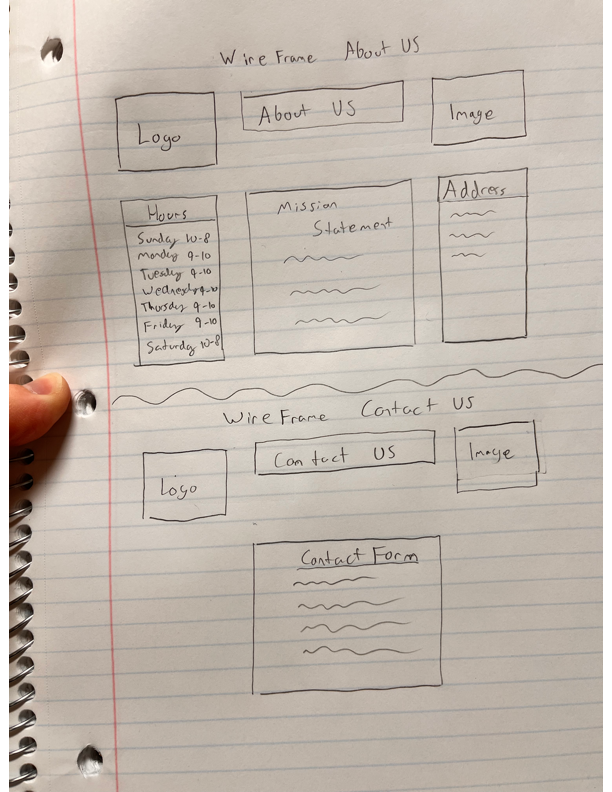 Wire Frame About US
Logo
About US
Image
Hours
Sunday 10-8
Monday 9-10
Tuesday 9-10
Wednesday 9-10
Thursday 9-10
Friday 9-10
Saturday 10-8
Mission
Statement
Address
Wire Frame Contact US
Logo
Contact US
Image
Contact Form